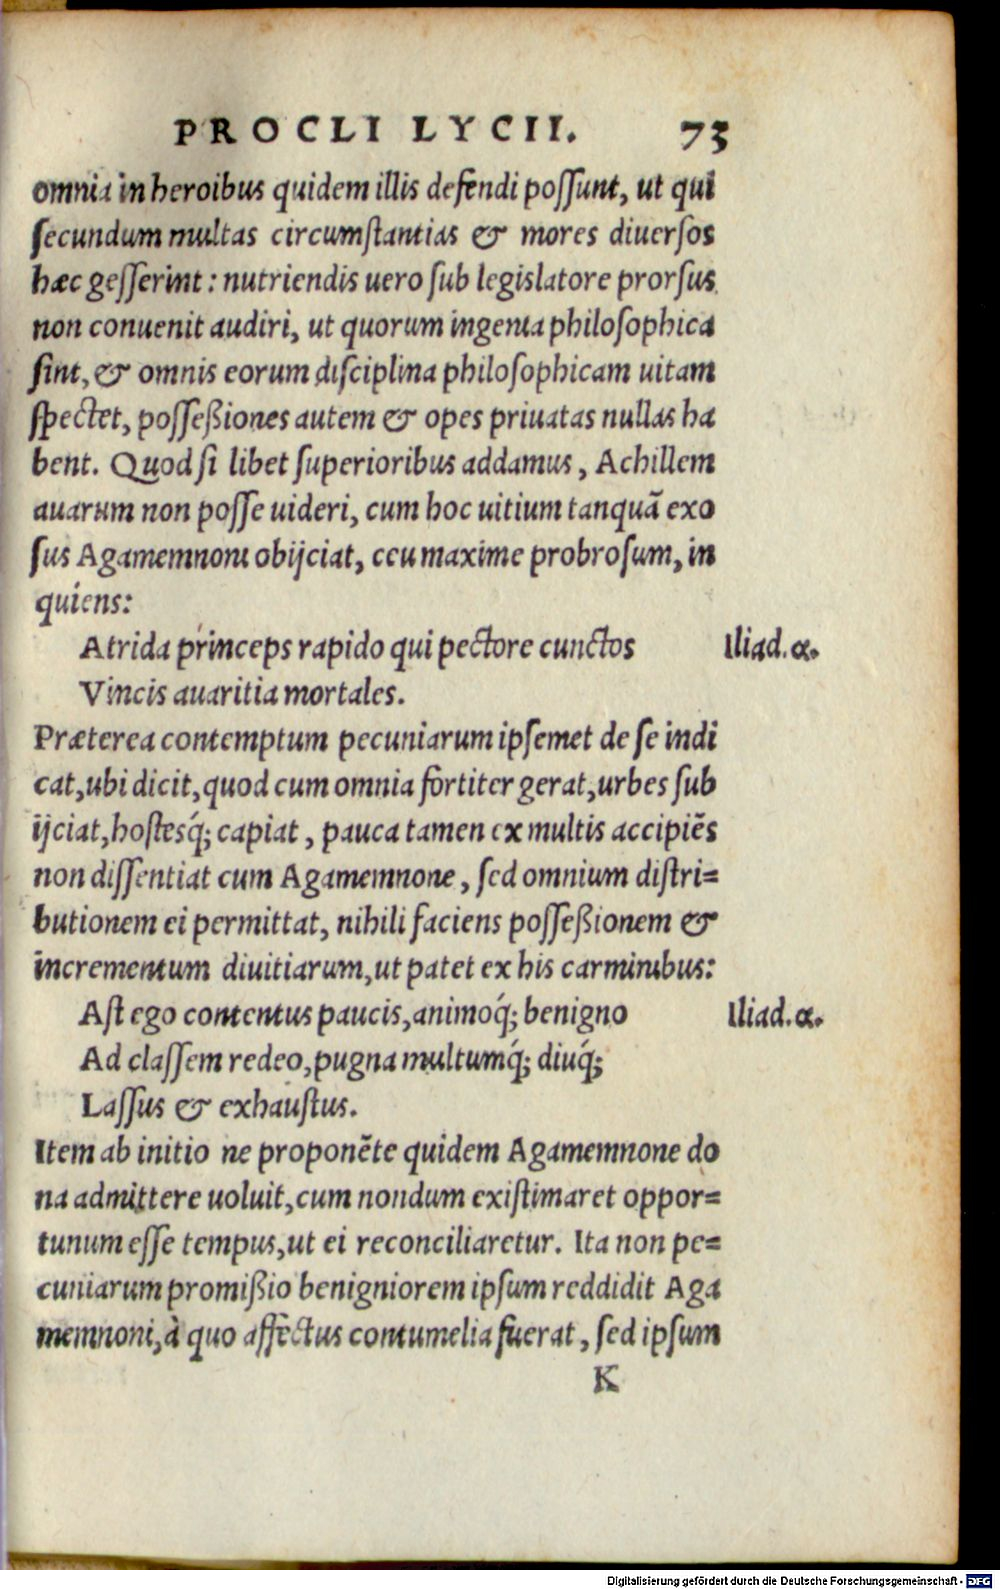 PROCLI LYCII. 73
omnia in heroibus quidem illis defendi possunt, ut qui
secundum multas circumstantias & mores diuersos
hæc gesserint: nutriendis uero sub legislatore prorsus
non conuenit audiri, ut quorum ingenia philosophica
sint, & omnis eorum disciplina philosophicam uitam
spectet, possessiones autem & opes priuatas nullas ha
bent. Quod si libet superioribus addamus, Achillem
auarum non posse uideri, cum hoc uitium tanquã exo
sus Agamemnoni obijciat, ceu maxime probrosum, in
quiens:
Atrida princeps rapido qui pectore cunctos Iliad.α.
Vincis auaritia mortales.
Præterea contemptum pecuniarum ipsemet de se indi
cat, ubi dicit, quod cum omnia fortiter gerat, urbes sub
ijciat, hostesq́; capiat, pauca tamen ex multis accipiẽs
non dissentiat cum Agamemnone, sed omnium distri=
butionem ei permittat, nihili faciens possessionem &
incrementum diuitiarum, ut patet ex his carminibus:
Ast ego contentus paucis, animoq́; benigno Iliad.α.
Ad classem redeo, pugna multumq́; diuq́;
Lassus & exhaustus.
Item ab initio ne proponẽte quidem Agamemnone do
na admittere uoluit, cum nondum existimaret oppor=
tunum esse tempus, ut ei reconciliaretur. Ita non pe=
cuniarum promissio benigniorem ipsum reddidit Aga
memnoni, à quo affectus contumelia fuerat, sed ipsum
K
Digitalisierung gefördert durch die Deutsche Forschungsgemeinschaft - DFG